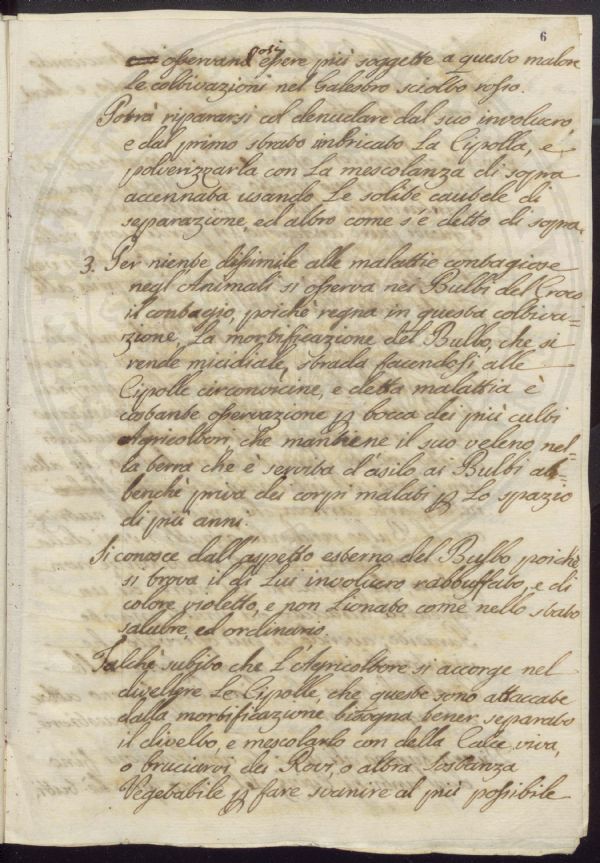 6
osservandosi essere più soggette a questo malore
le coltivazioni nel Galestro sciolto rosso.
Potrà ripararsi col denudare dal suo involucro,
e dal primo strato imbricato La Cipolla, e
polverizzarla con La mescolanza di sopra
accennata usando Le solite cautele di
separazione, ed altro come s'è detto di sopra.
3. Per niente dissimile alle malattie contagiose
negl'Animali si osserva nei Bulbi del Croco
il contagio, poichè regna in questa coltiva=
zione, La mortificazione del Bulbo, che si
rende micidiale, strada facendosi alle
Cipolle circonvicine, e detta malattia è
costante osservazione p bocca dei più culti
Agricoltori, che mantiene il suo veleno nel=
la terra che è servita d'asilo ai Bulbi ab=
benchè priva dei corpi malati p Lo spazio
di più anni.
Si conosce dall'aspetto esterno del Bulbo poichè
si trova il di Lui involucro rabbuffato, e di
colore violetto, e non Lionato come nello stato
salubre, ed ordinario.
Talchè subito che L'Agricoltore si accorge nel
divellere Le Cipolle, che queste sono attaccate
dalla mortificazione bisogna tener separato
il divelto, e mescolarlo con della Calce viva,
o bruciarvi dei Rovi, o altra Sostanza
Vegetabile p fare svanire al più possibile